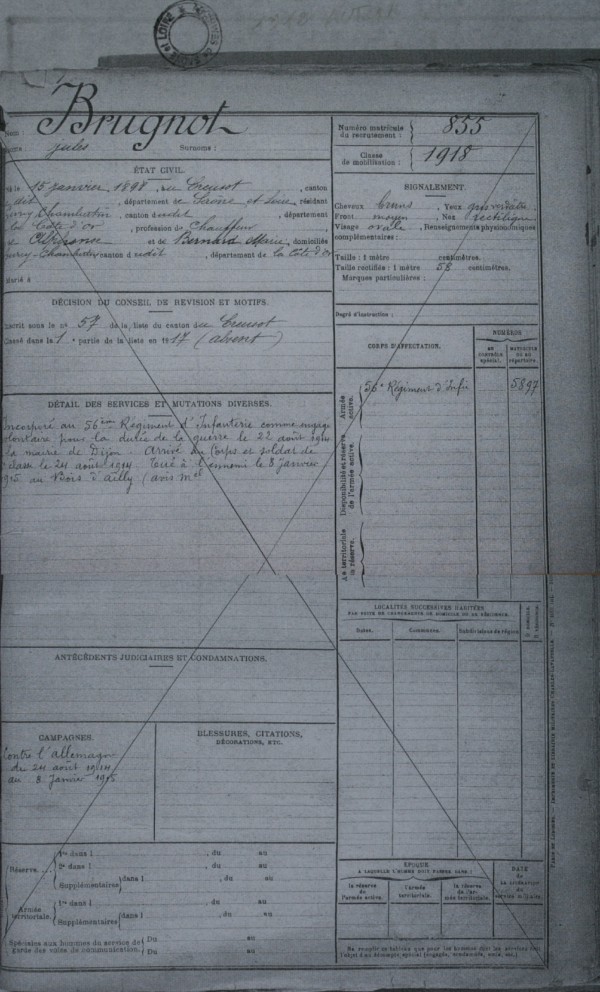 Brugnot
Jules Surnoms :
Numéro matricule du recrutement : 855
Classe de mobilisation : 1918
ÉTAT CIVIL.
15 janvier 1898, au Creusot, canton
dudit, département de Saône et Loire, résidant
Chambertin, canton dudit, département
la Côte d'or, profession de Chauffeur
et de Bernard Marie, domiciliés
Chambertin canton dudit, département de la Côte d'or
Marié à
SIGNALEMENT.
Cheveux bruns Yeux
Front moyen Nez rectiligne
Visage ovale Renseignements physionomiques
complémentaires :
Taille : 1 mètre centimètres.
Taille rectifiée : 1 mètre 58 centimètres.
Marques particulières :
Degré d'instruction :
DÉCISION DU CONSEIL DE RÉVISION ET MOTIFS.
Inscrit sous le n° 57 de la liste du canton du Creusot
Classé dans la 1e partie de la liste en 1917 (absent)
DÉTAIL DES SERVICES ET MUTATIONS DIVERSES.
Incorporé au 56ème Régiment d'Infanterie comme engagé
volontaire pour la durée de la guerre le 22 août 1914
la mairie de Dijon. Arrivé au Corps et soldat de
classe le 24 août 1914. Tué à l'ennemi le 8 janvier
1915 au Bois d'Ailly (avis mel
CORPS D'AFFECTATION.
NUMÉROS
au contrôle spécial.
matricule ou au répertoire.
Armée active.
56e Régiment d'Infie 5897
Disponibilité et réserve de l'armée active.
Armée territoriale et sa réserve.
LOCALITÉS SUCCESSIVES HABITÉES
PAR SUITE DE CHANGEMENTS DE DOMICILE OU DE RÉSIDENCE.
Dates. Communes. Subdivisions de région
ANTÉCÉDENTS JUDICIAIRES ET CONDAMNATIONS.
CAMPAGNES.
Contre l'Allemagne
du 24 août 1914
au 8 Janvier 1915
BLESSURES, CITATIONS,
DÉCORATIONS, ETC.
Réserve....
1re dans l , du au
2e dans l , du au
Supplémentaires dans l , du au
Armée territoriale.
1re dans l , du au
Supplémentaires dans l , du au
Spéciales aux hommes du service de garde des voies de communication. Du au
Du au
ÉPOQUE
À LAQUELLE L'HOMME DOIT PASSER DANS :
la réserve de l'armée active.
l'armée territoriale.
la réserve de l'armée territoriale.
DATE de la libération du service militaire.